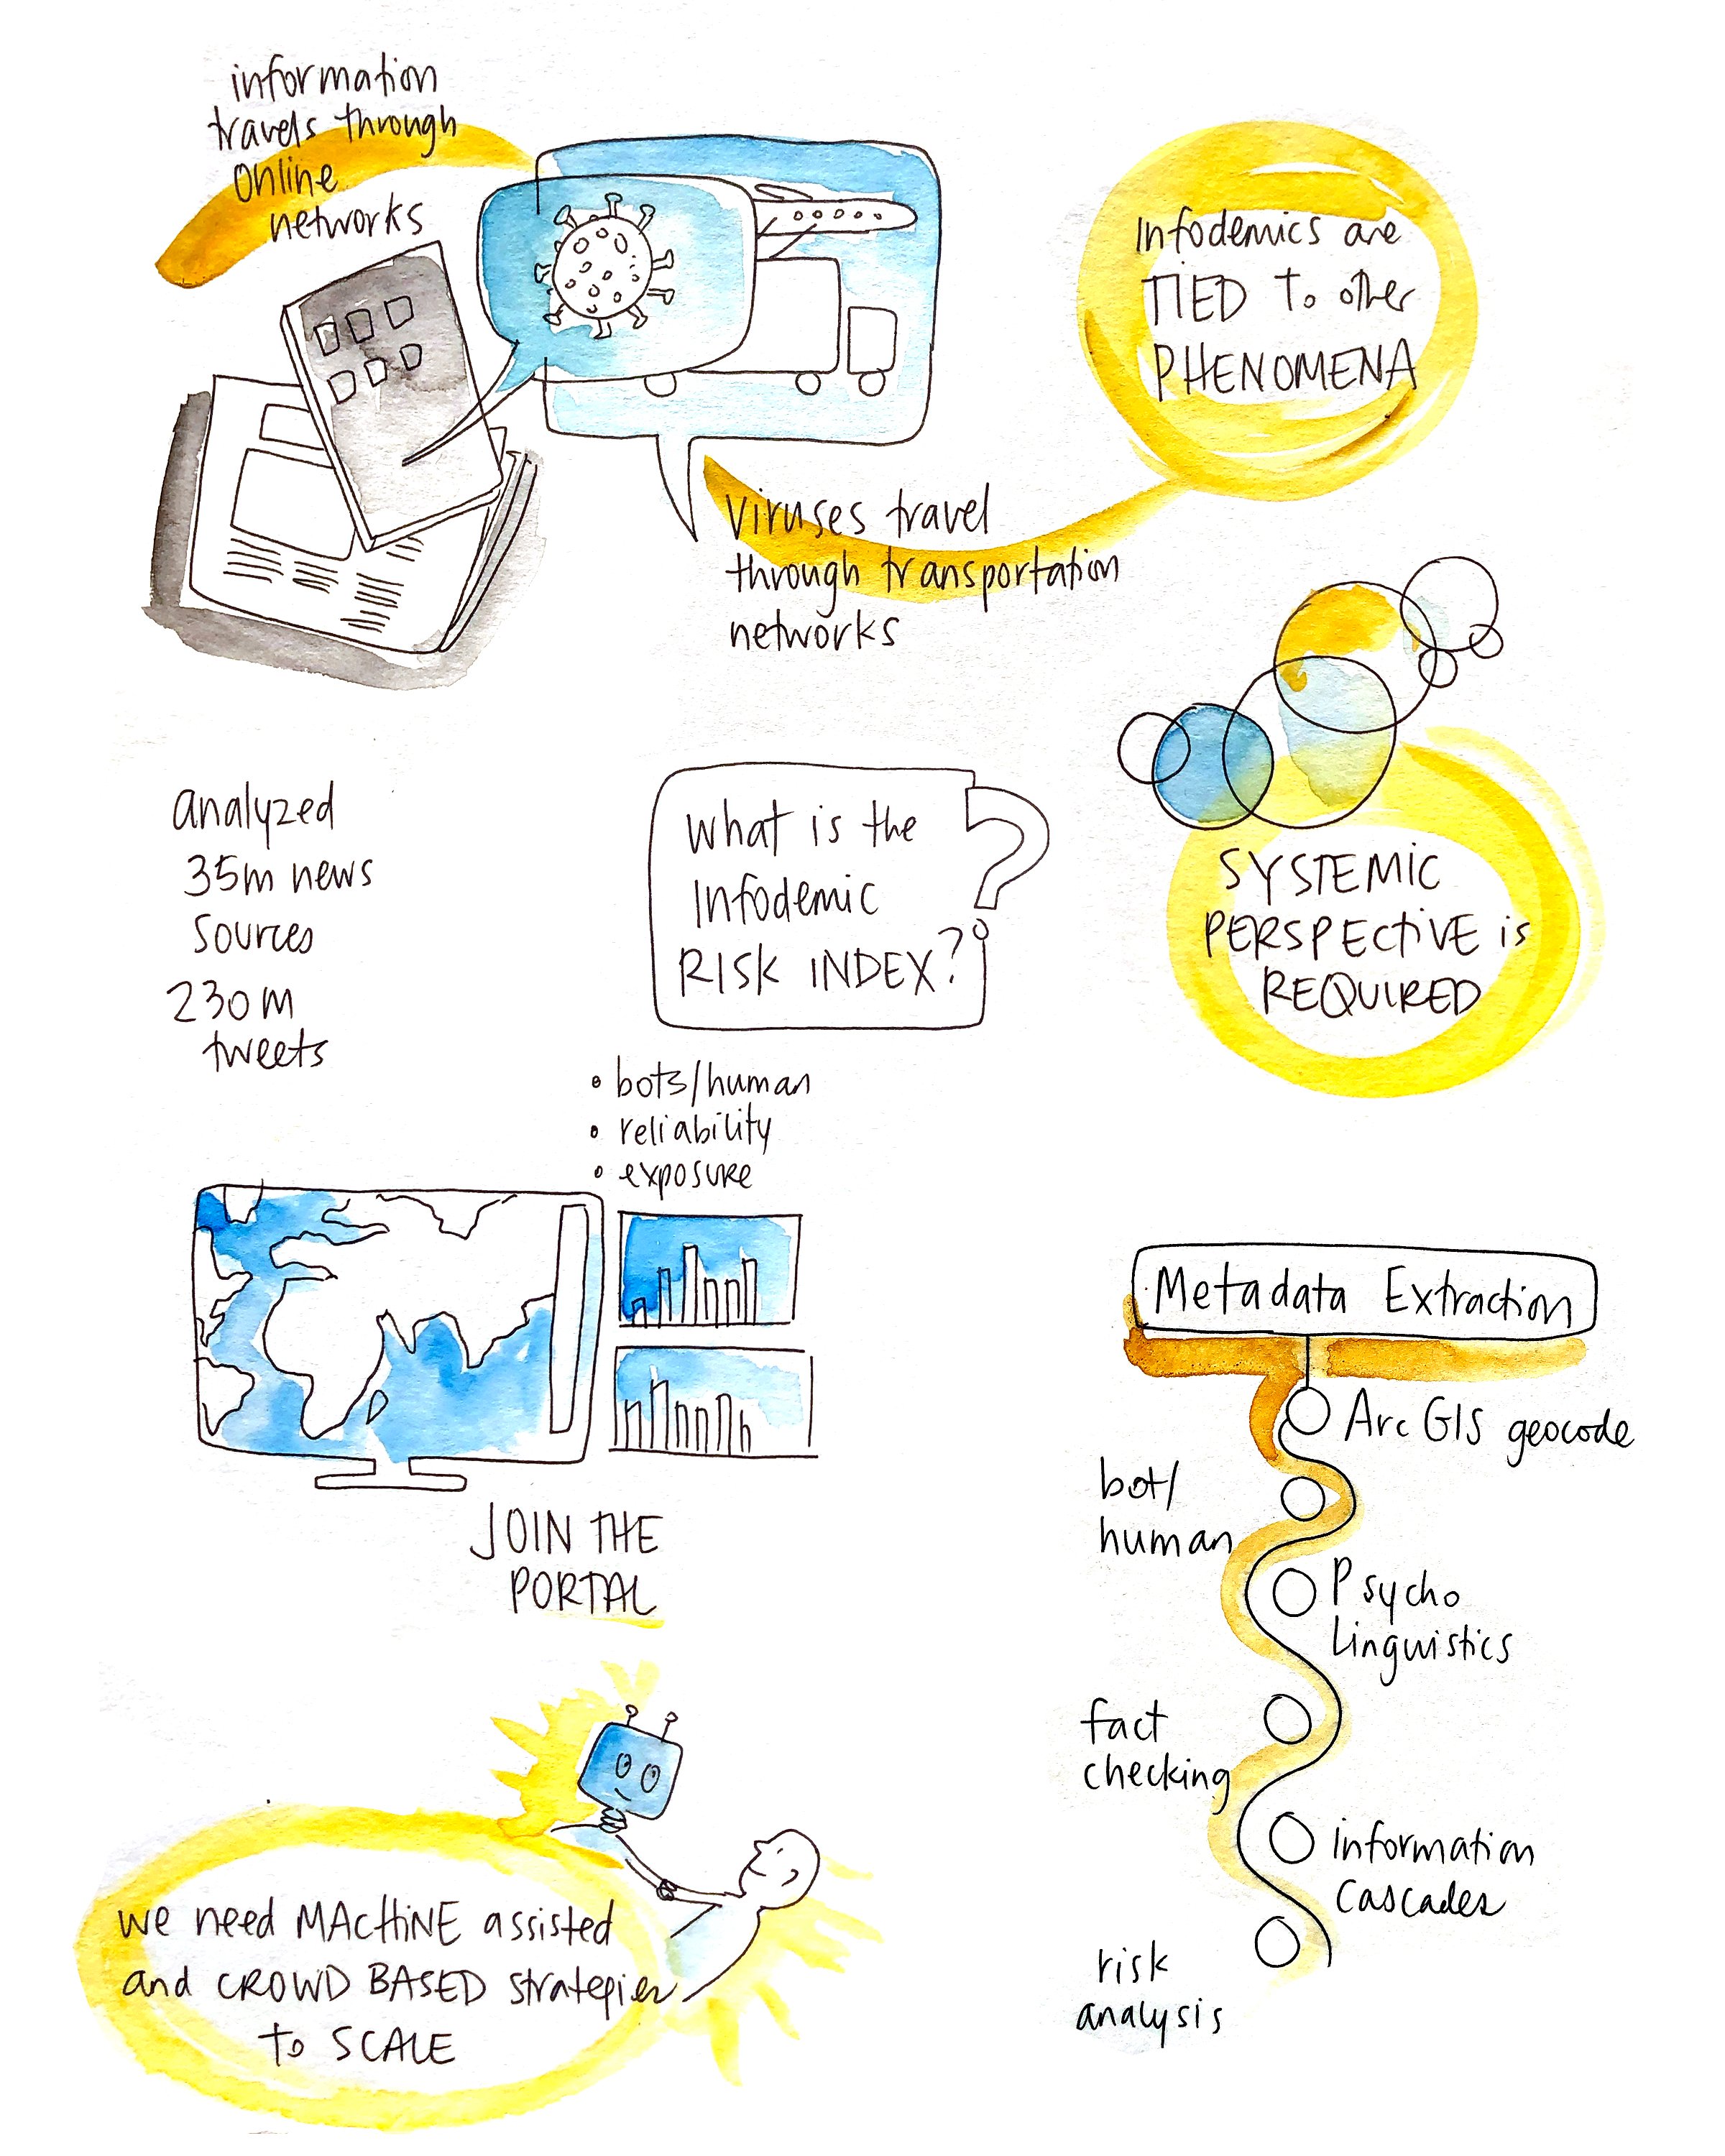 information
travels through
online
networks
Infodemics are
TIED to other
PHENOMENA
Viruses travel
through transportation
networks
analyzed
35m news
sources
230m
tweets
What is the
Infodemic
RISK INDEX?
?
SYSTEMIC
PERSPECTIVE is
REQUIRED
• bots/human
• reliability
• exposure
JOIN THE
PORTAL
Metadata Extraction
ArcGIS geocode
bot/
human
Psycho
Linguistics
fact
checking
information
cascades
risk
analysis
we need MACHINE assisted
and CROWD BASED strategies
to SCALE